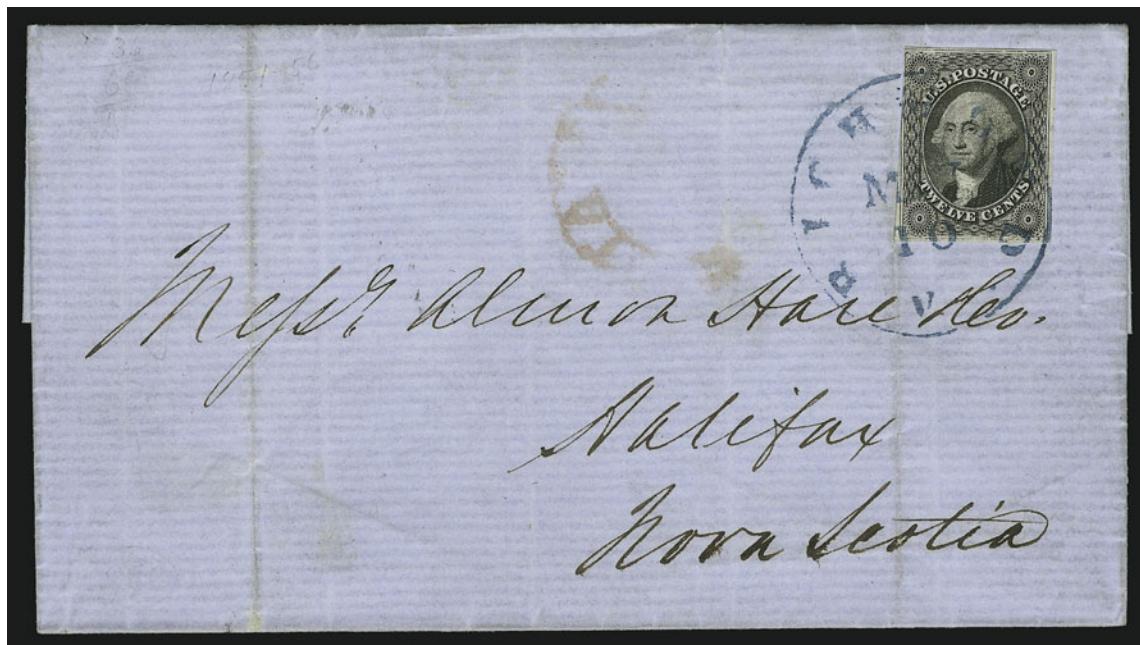 U.S. POSTAGE
TWELVE CENTS
RICHMOND
VA
10
Messrs Almon Hare & Co.
Halifax
Nova Scotia